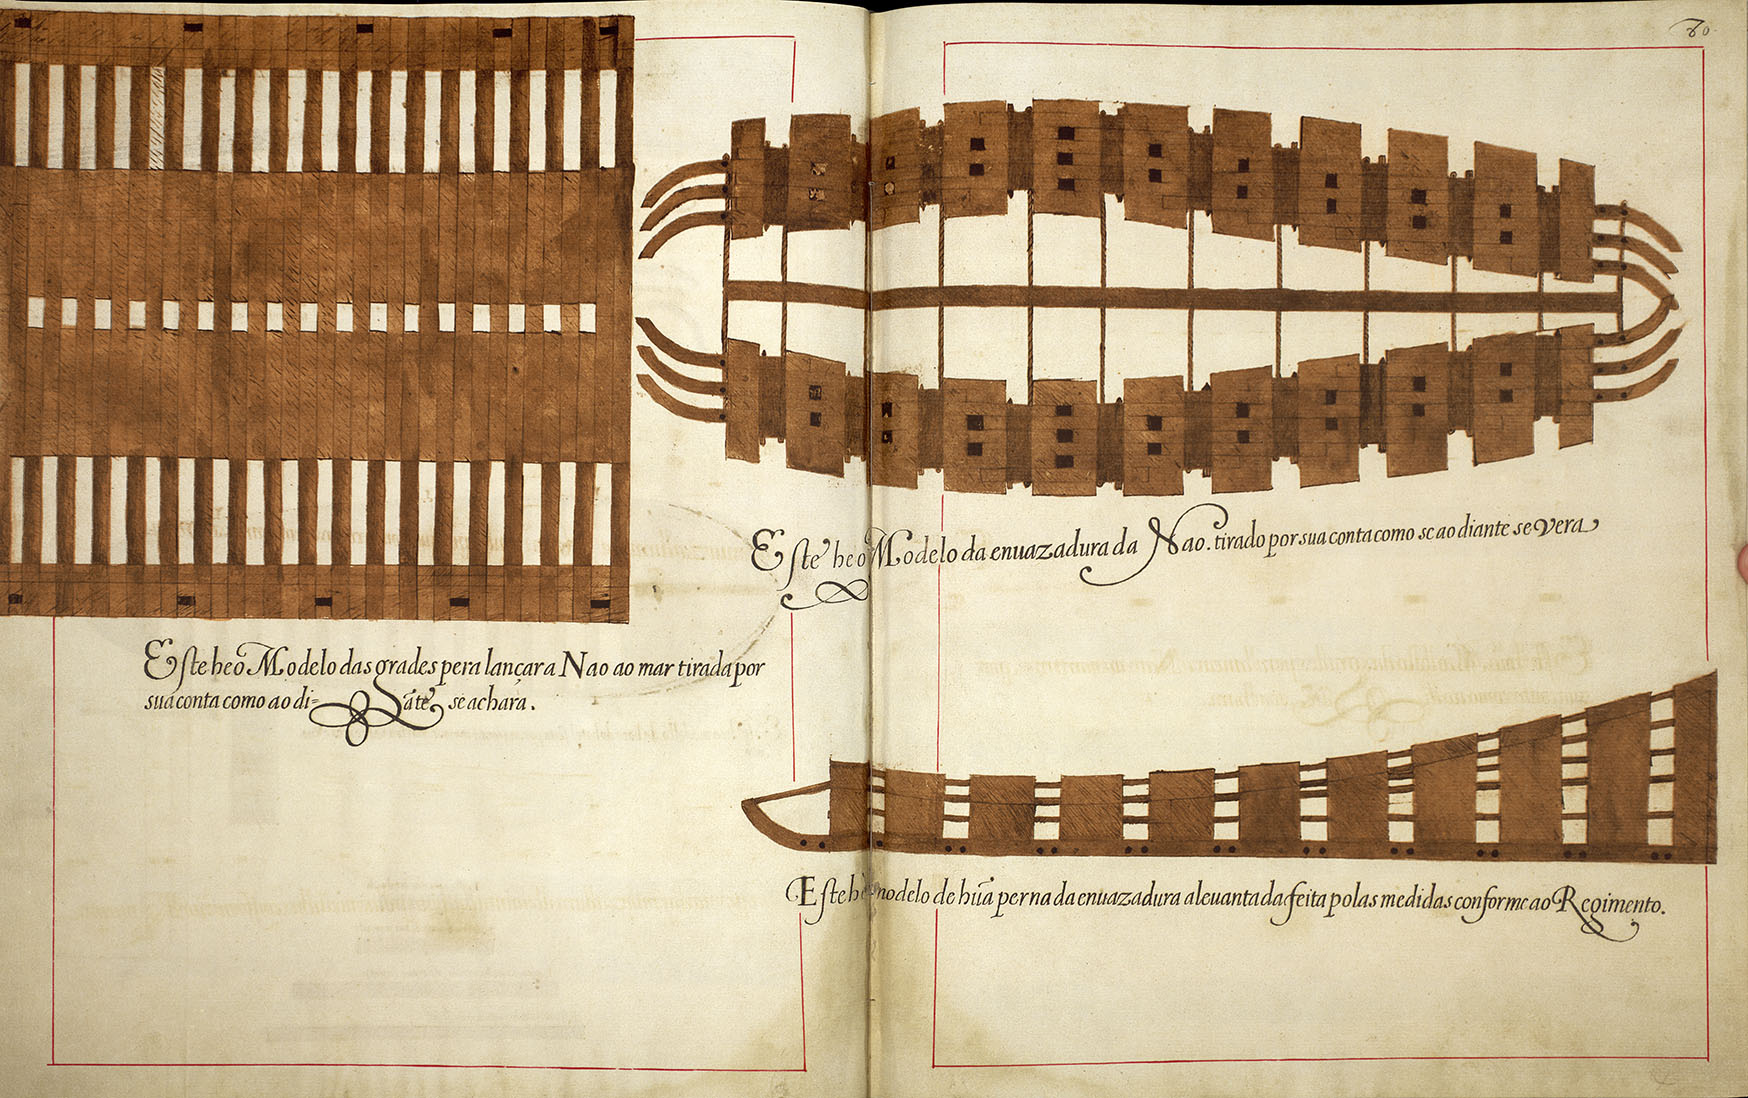 80
Este he o Modelo da enuazadura da Nao. tirado por sua conta como se ao diante se vera
Este he o Modelo das grades pera lançar a Nao ao mar tirada por
sua conta como ao di=ãte se achara.
Este he modelo de hũa perna da enuazadura aleuantada feita polas medidas conforme ao Regimento.